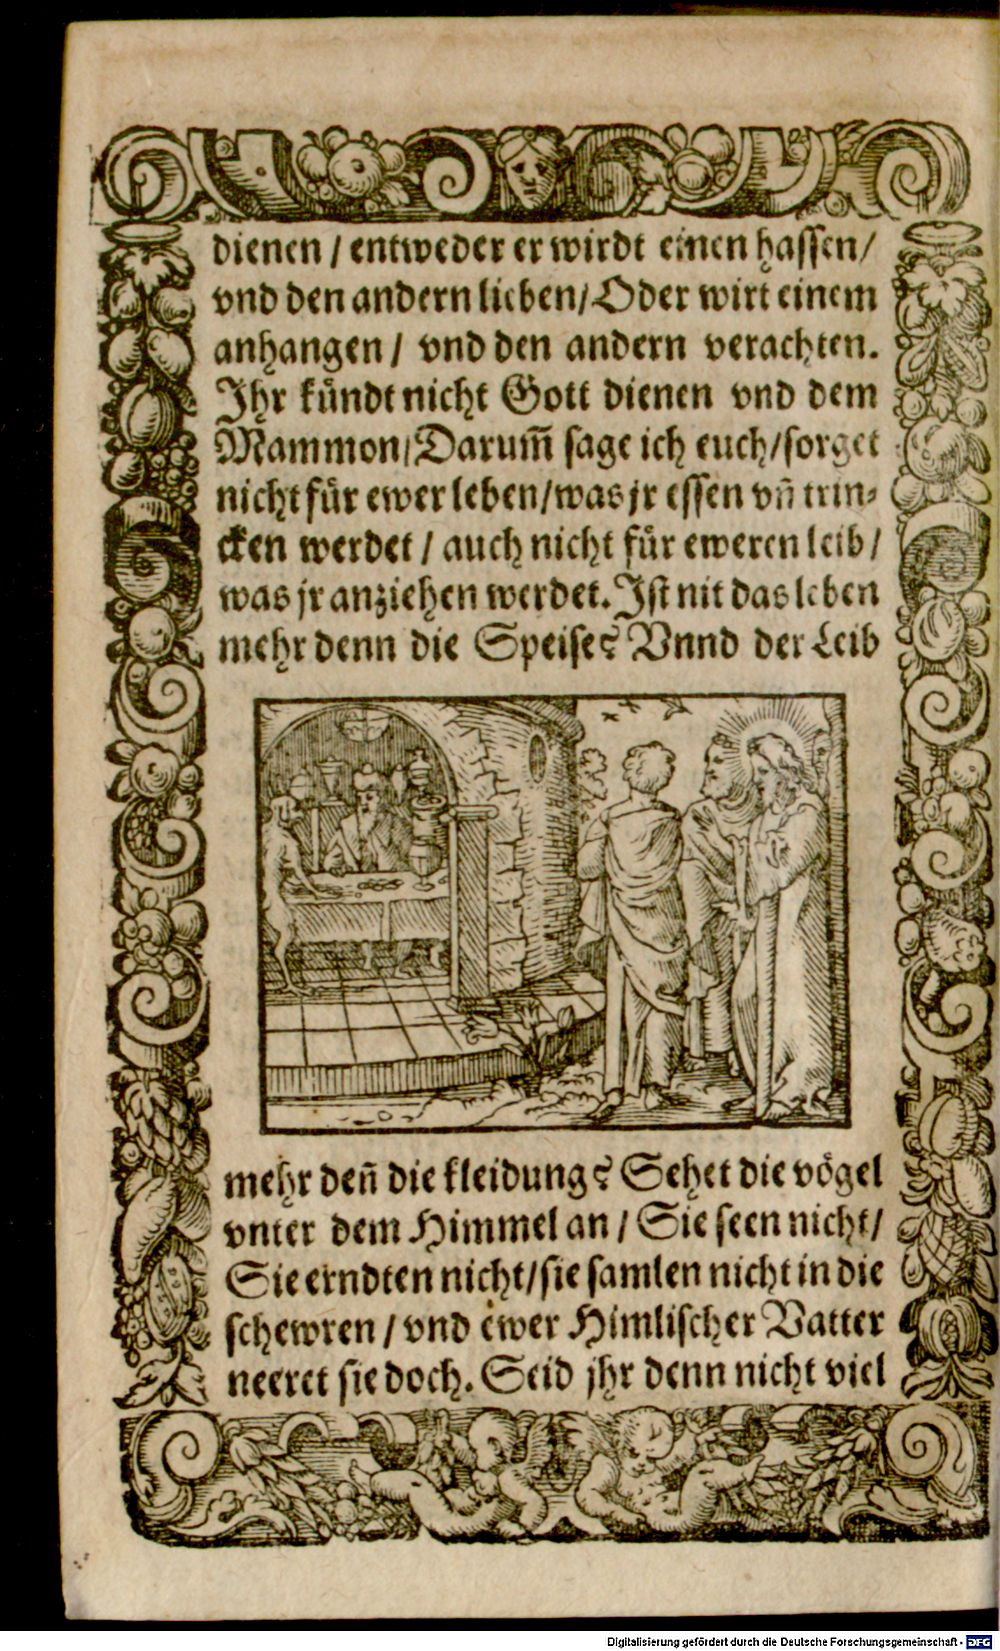 dienen / entweder er wirdt einen hassen /
vnd den andern lieben / Oder wirt einem
anhangen / vnd den andern verachten.
Jhr kündt nicht Gott dienen vnd dem
Mammon / Darum̃ sage ich euch / sorget
nicht für ewer leben / was jr essen vñ trin⸗
cken werdet / auch nicht für eweren leib /
was jr anziehen werdet. Jst nit das leben
mehr denn die Speise? Vnnd der Leib
mehr deñ die kleidung? Sehet die vögel
vnter dem Himmel an / Sie seen nicht /
Sie erndten nicht / sie samlen nicht in die
schewren / vnd ewer Himlischer Vatter
neeret sie doch. Seid jhr denn nicht viel
Digitalisierung gefördert durch die Deutsche Forschungsgemeinschaft - DFG